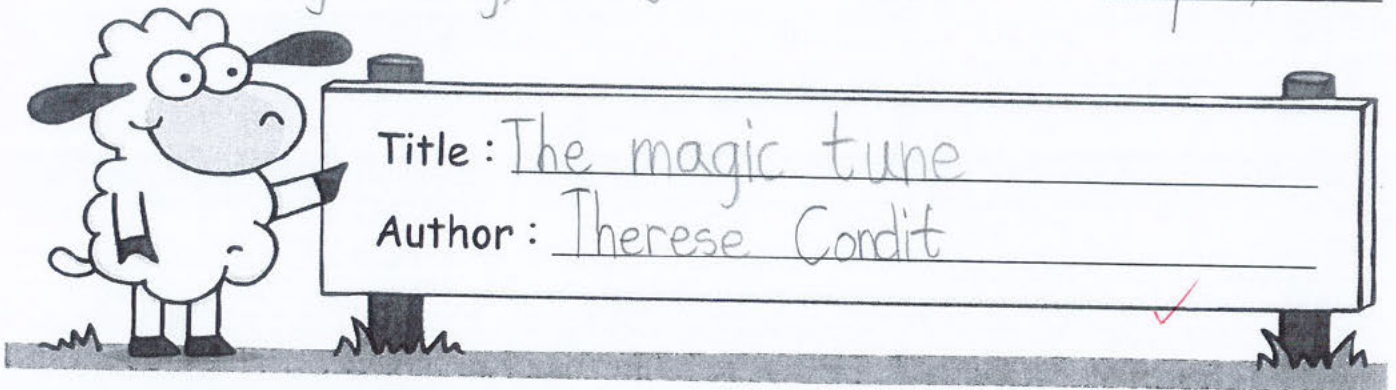 Title : The magic tune
Author : Therese Condit